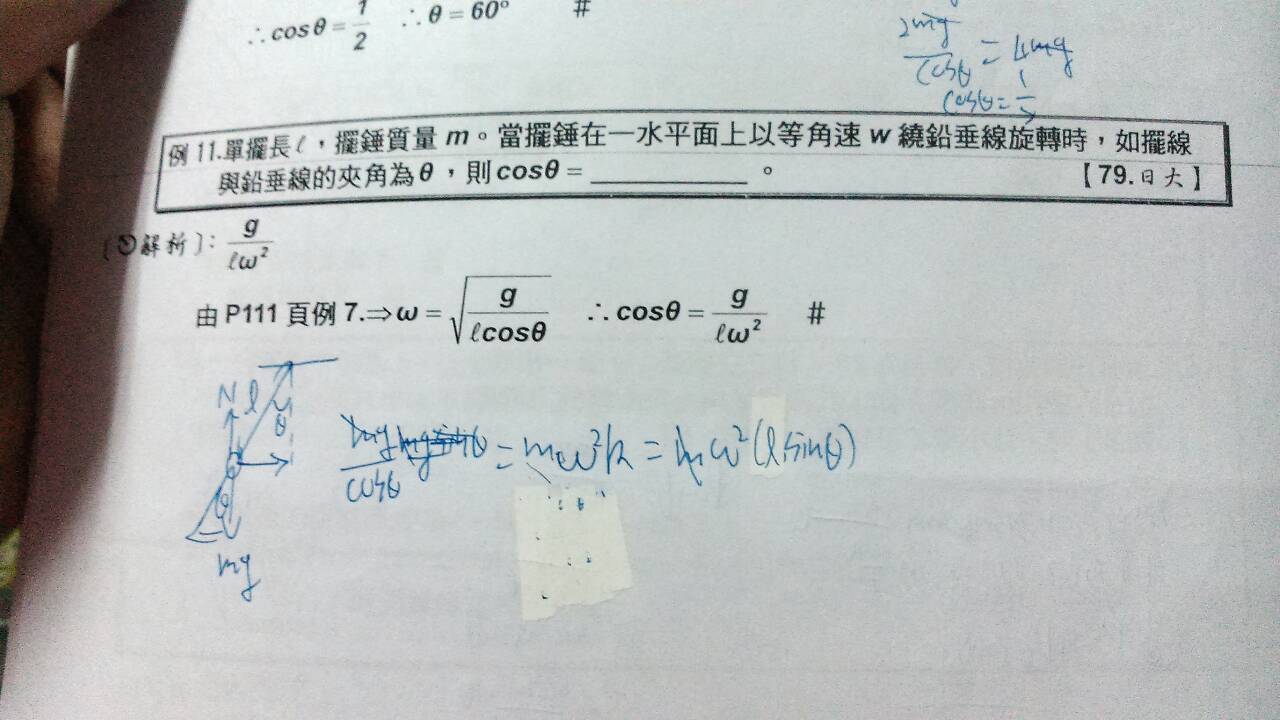 ∴cosθ = 1/2 ∴θ = 60° #
2mg/cosθ = 4mg
cosθ = 1/2
例 11.單擺長ℓ,擺錘質量 m。當擺錘在一水平面上以等角速 w 繞鉛垂線旋轉時,如擺線
與鉛垂線的夾角為θ,則cosθ = ____________ 。 【79.日大】
解析]: g/ℓω²
由 P111 頁例 7.⇒ω = √(g/ℓcosθ) ∴cosθ = g/ℓω² #
N ℓ
θ
mg/cosθ = mω²R = mω²(ℓsinθ)
θ
mg